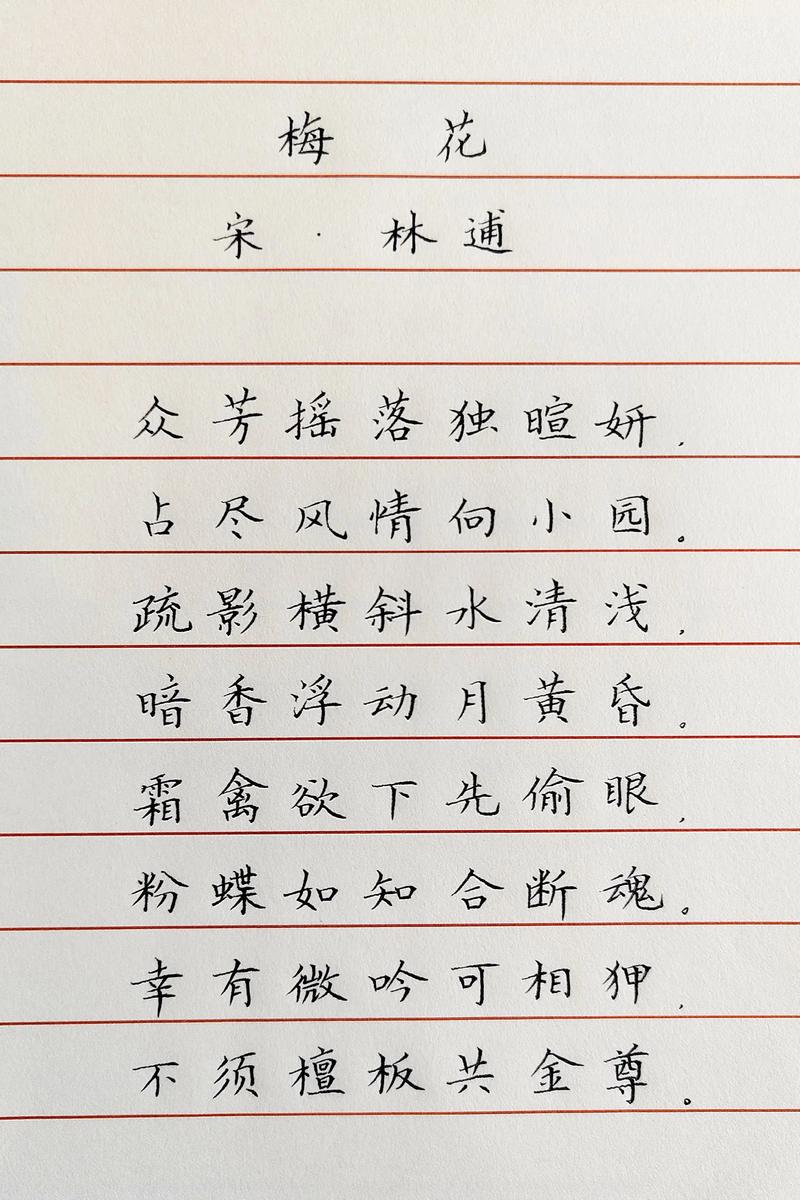 梅 花
宋·林逋
众芳摇落独暄妍,
占尽风情向小园。
疏影横斜水清浅,
暗香浮动月黄昏。
霜禽欲下先偷眼,
粉蝶如知合断魂。
幸有微吟可相狎,
不须檀板共金尊。